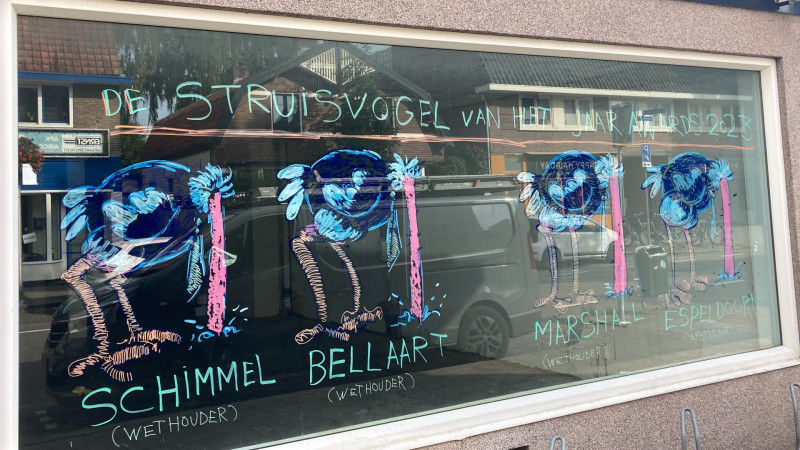 DE STRUISVOGEL VAN HET JAAR AWARDS 2023
SCHIMMEL
(WETHOUDER)
BELLAART
(WETHOUDER)
MARSHALL
(WETHOUDER)
ESPELDOORN
ERNST
APK
AIRCO
HAPPY HAIR